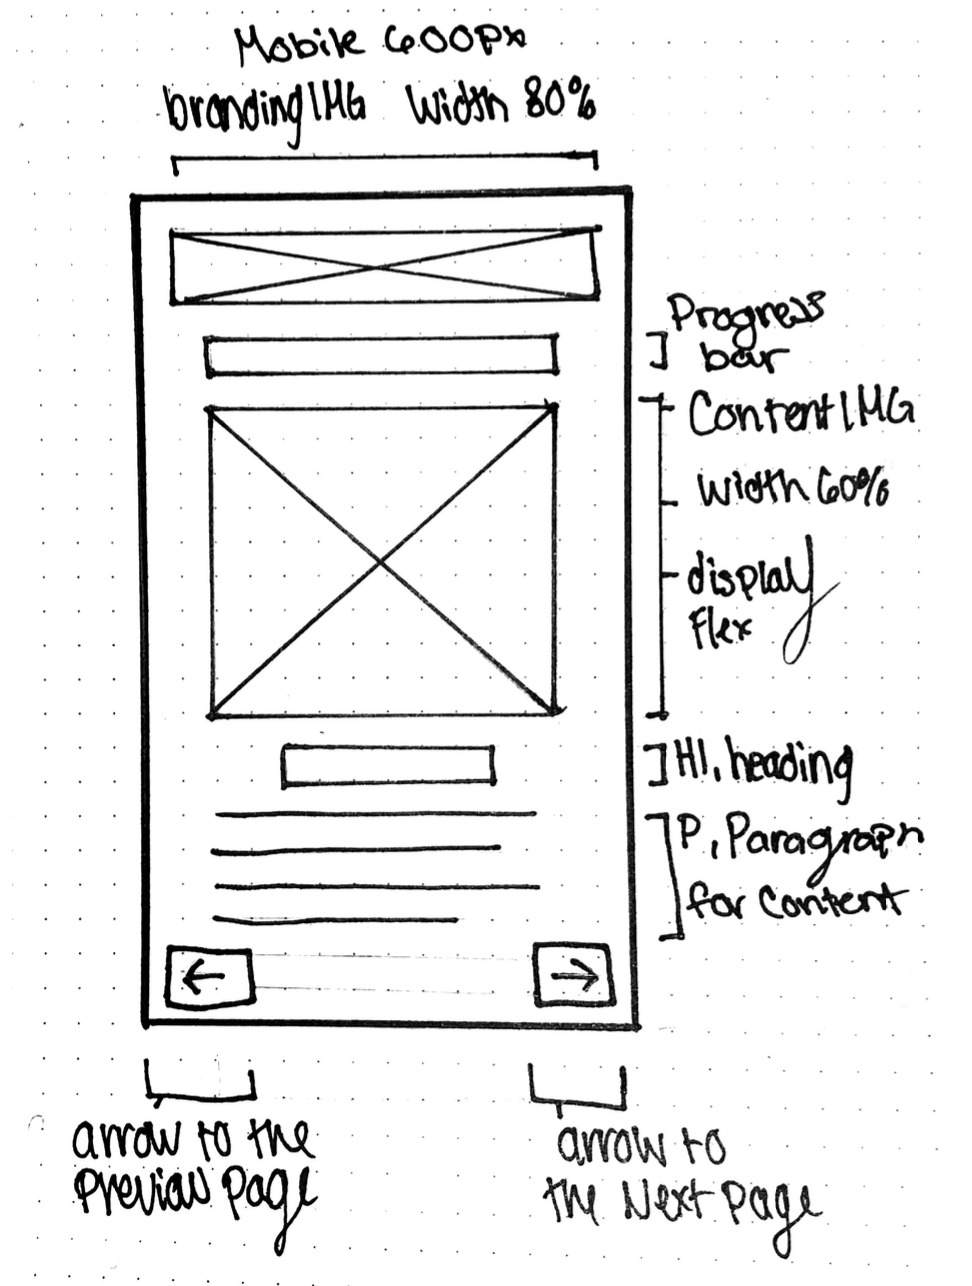 Mobile 600px
brandingIMG Width 80%
Progress
bar
ContentIMG
Width 60%
display
flex
H1, heading
P, Paragraph
for content
←
→
arrow to the
Previou Page
arrow to
the Next Page